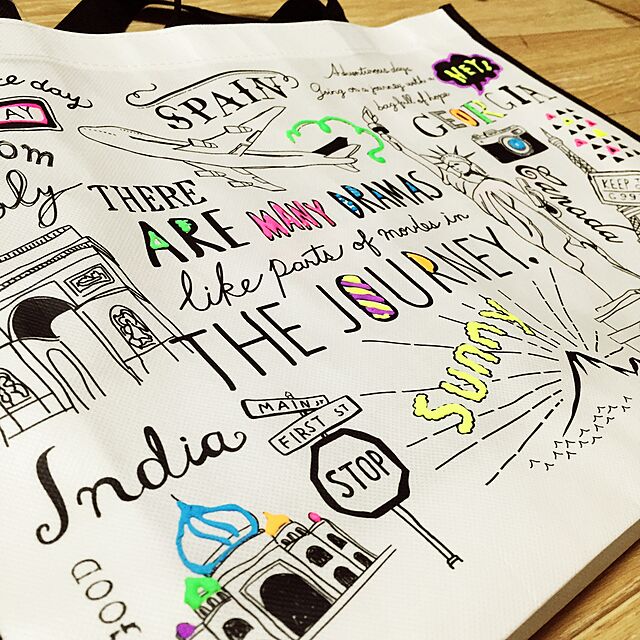 day
AY
SPAIN
Adventurous days
Going on a journey with a
bag full of hopes
HEY!!
GEORGIA
Canada
KEEP
THERE
ARE MANY DRAMAS
like parts of movies in
THE JOURNEY.
Sunny
MAIN ST
FIRST ST
STOP
India